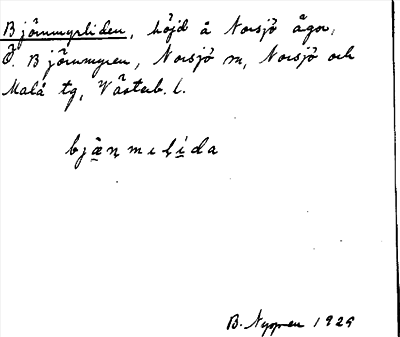 Björnmyrliden, höjd å Norsjö ägor,
Ö. Björnmyren, Norsjö sn, Norsjö och
Malå tg, Västerb. l.
bjäṇmɩḷída
B. Nyman 1929